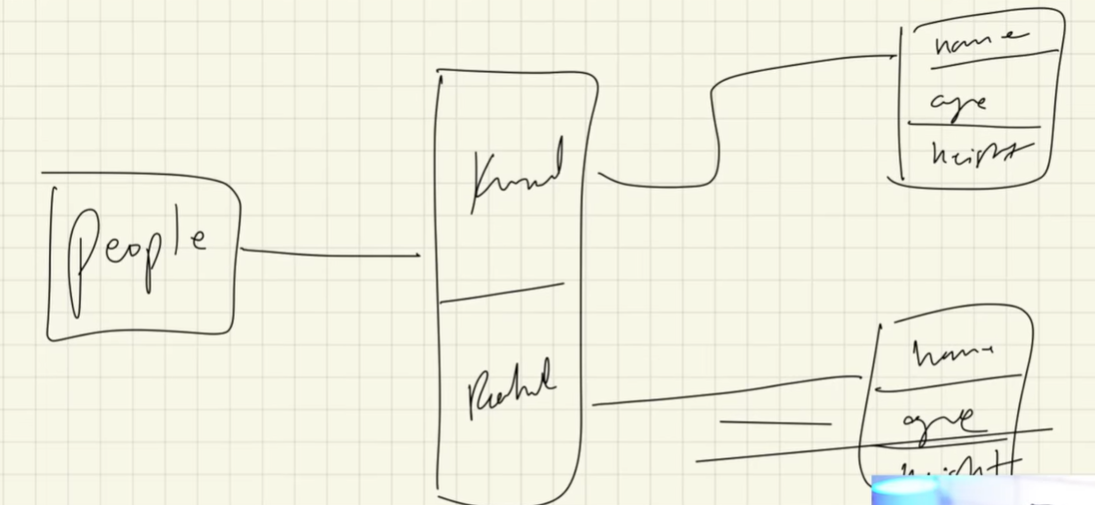 People
Kunal
Rahul
name
age
height
name
age
height